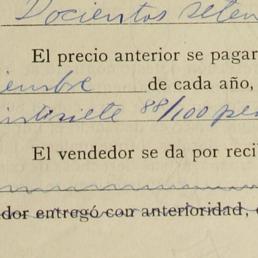 Docientos seten
El precio anterior se pagar
iembre de cada año,
intisiete 88/100 pe
El vendedor se da por reci
dor entregó con anterioridad,